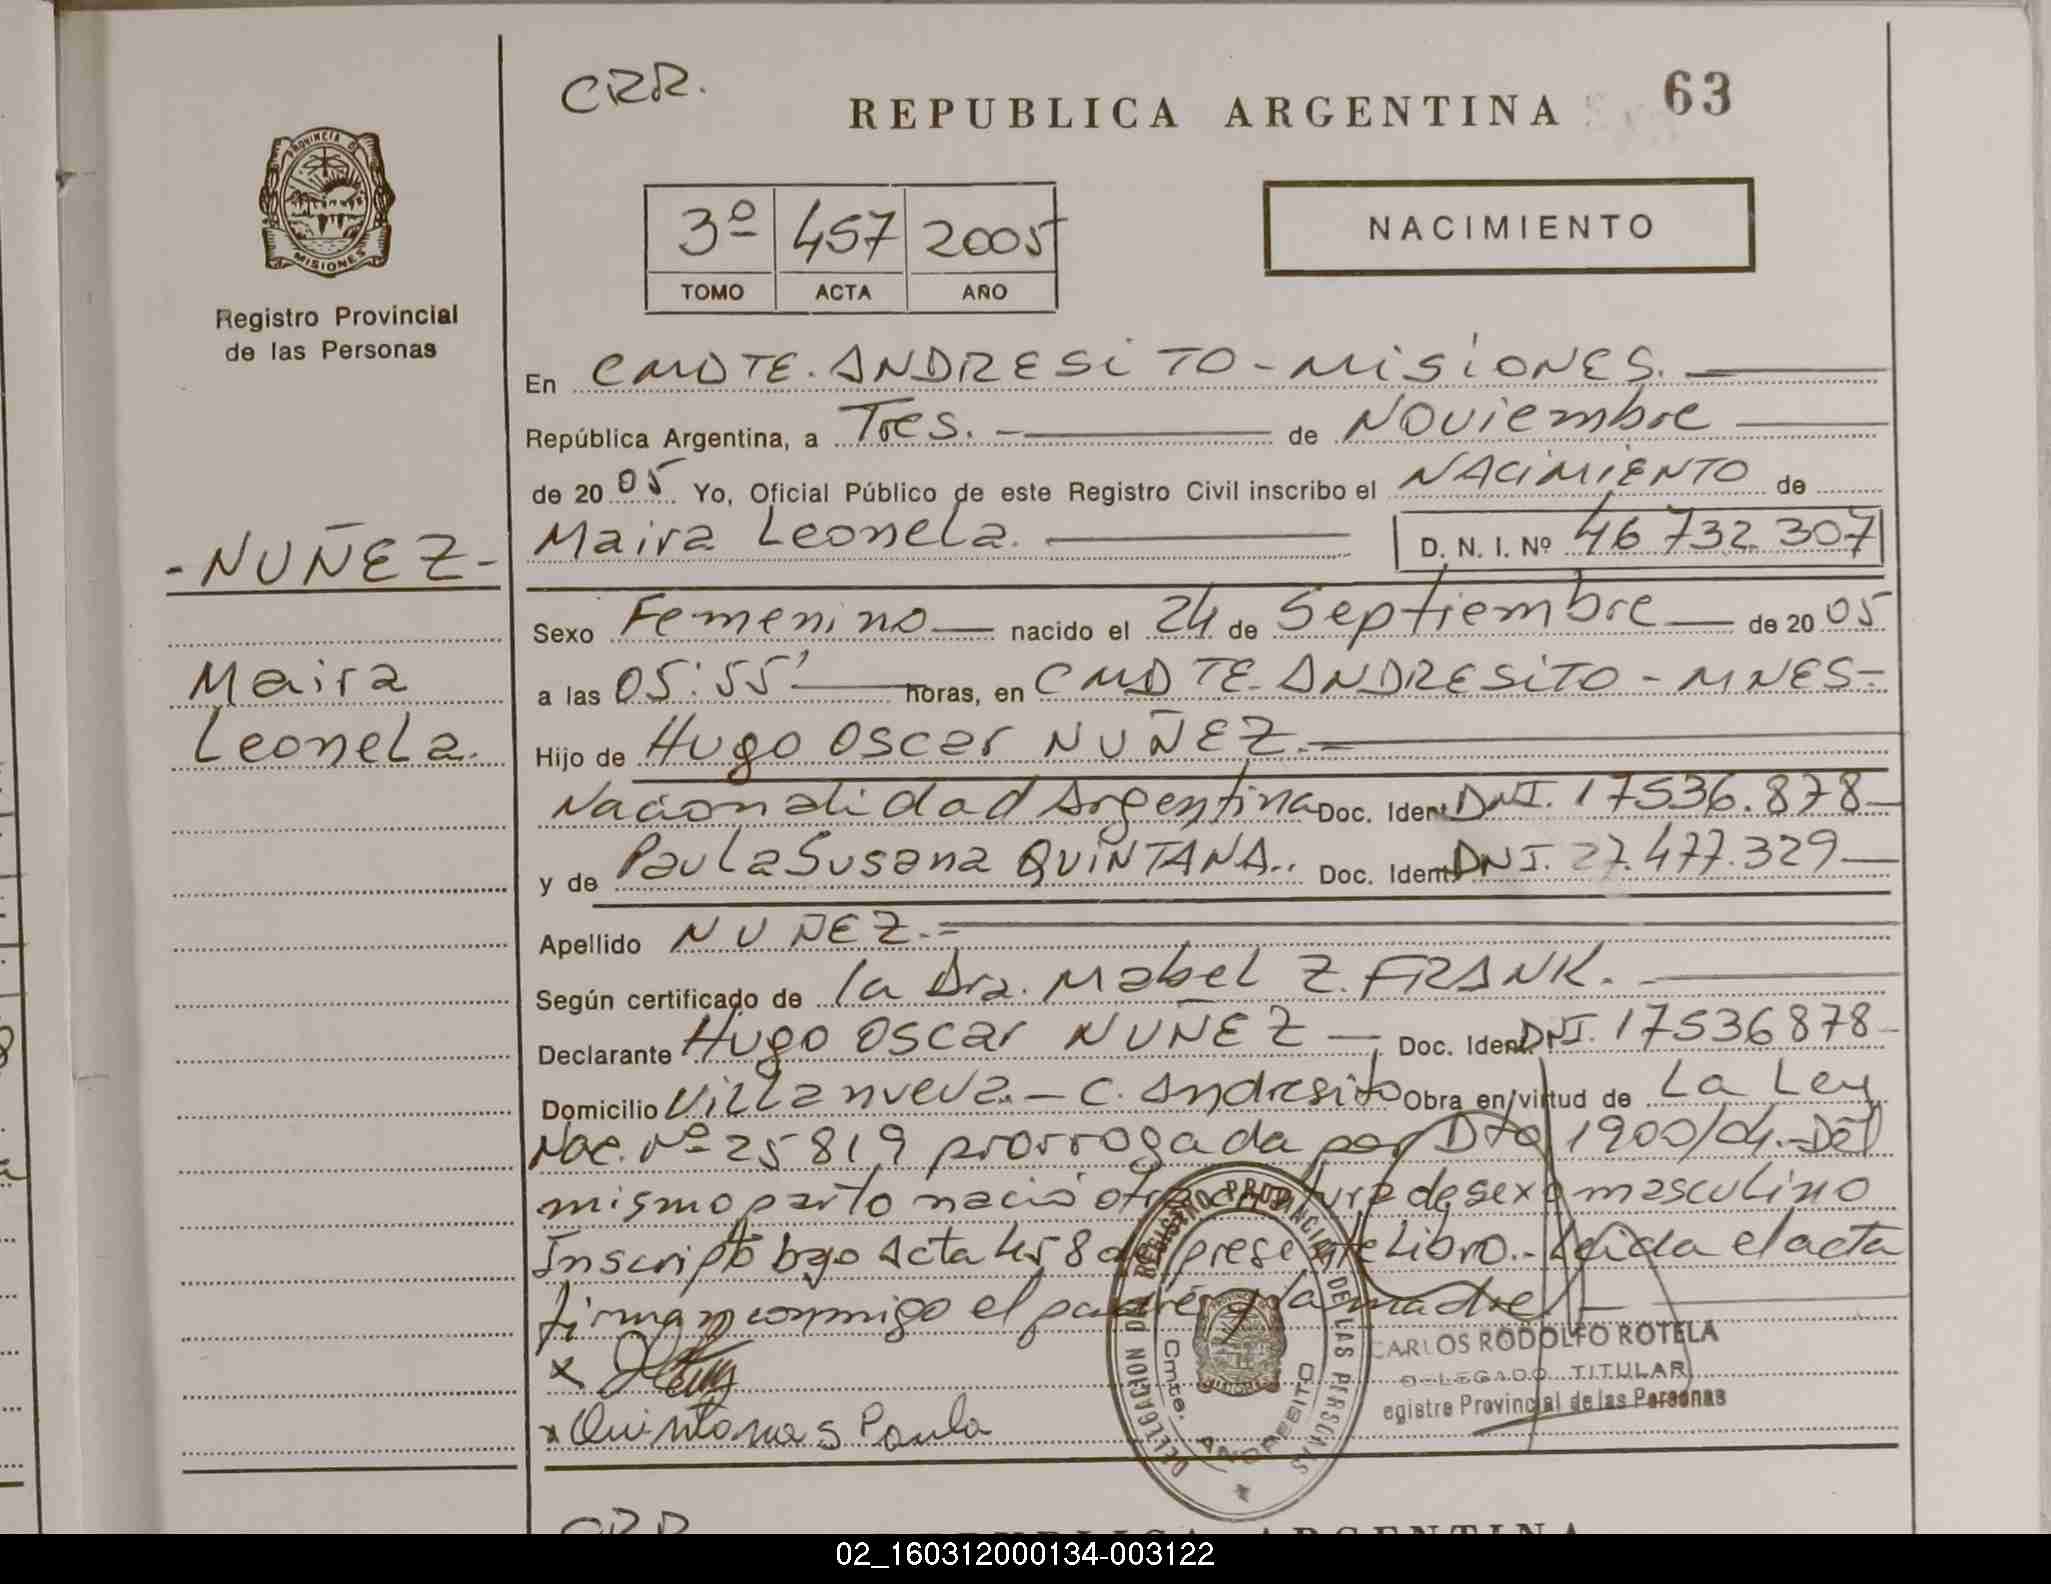 CRR.
REPUBLICA ARGENTINA
63
PROVINCIA DE
MISIONES
Registro Provincial
de las Personas
3º 457 2005
TOMO ACTA AÑO
NACIMIENTO
En CMDTE. ANDRESITO - MISIONES.
República Argentina, a Tres. de Noviembre
de 2005 Yo, Oficial Público de este Registro Civil inscribo el NACIMIENTO de
Maira Leonela. D. N. I. Nº 46 732 307
- NUÑEZ -
Maira
Leonela.
Sexo Femenino nacido el 24 de Septiembre de 2005
a las 05:55' horas, en CMDTE. ANDRESITO - MNES-
Hijo de Hugo Oscar NUÑEZ.-
Nacionalidad Argentina Doc. Ident. DNI. 17536.878
y de Paula Susana QUINTANA.. Doc. Ident. DNI. 27.477.329
Apellido NUÑEZ.-
Según certificado de la Dra. Mabel Z. FRANK.
Declarante Hugo Oscar NUÑEZ Doc. Ident. DNI. 17536878
Domicilio Villa nueva.- C. Andresito Obra en virtud de La Ley
Nac. Nº 25819 prorrogada por Dto 1900/04.- Del
mismo parto nació otra criatura de sexo masculino
Inscripto bajo Acta 458 del presente Libro.- Leida el acta
firman conmigo el padre y la madre
x
x Quintana S Paula
DELEGACION DEL REGISTRO PROVINCIAL DE LAS PERSONAS
Cmte. ANDRESITO
CARLOS RODOLFO ROTELA
DELEGADO TITULAR
egistro Provincial de las Personas
CRR
REPUBLICA ARGENTINA
02_160312000134-003122